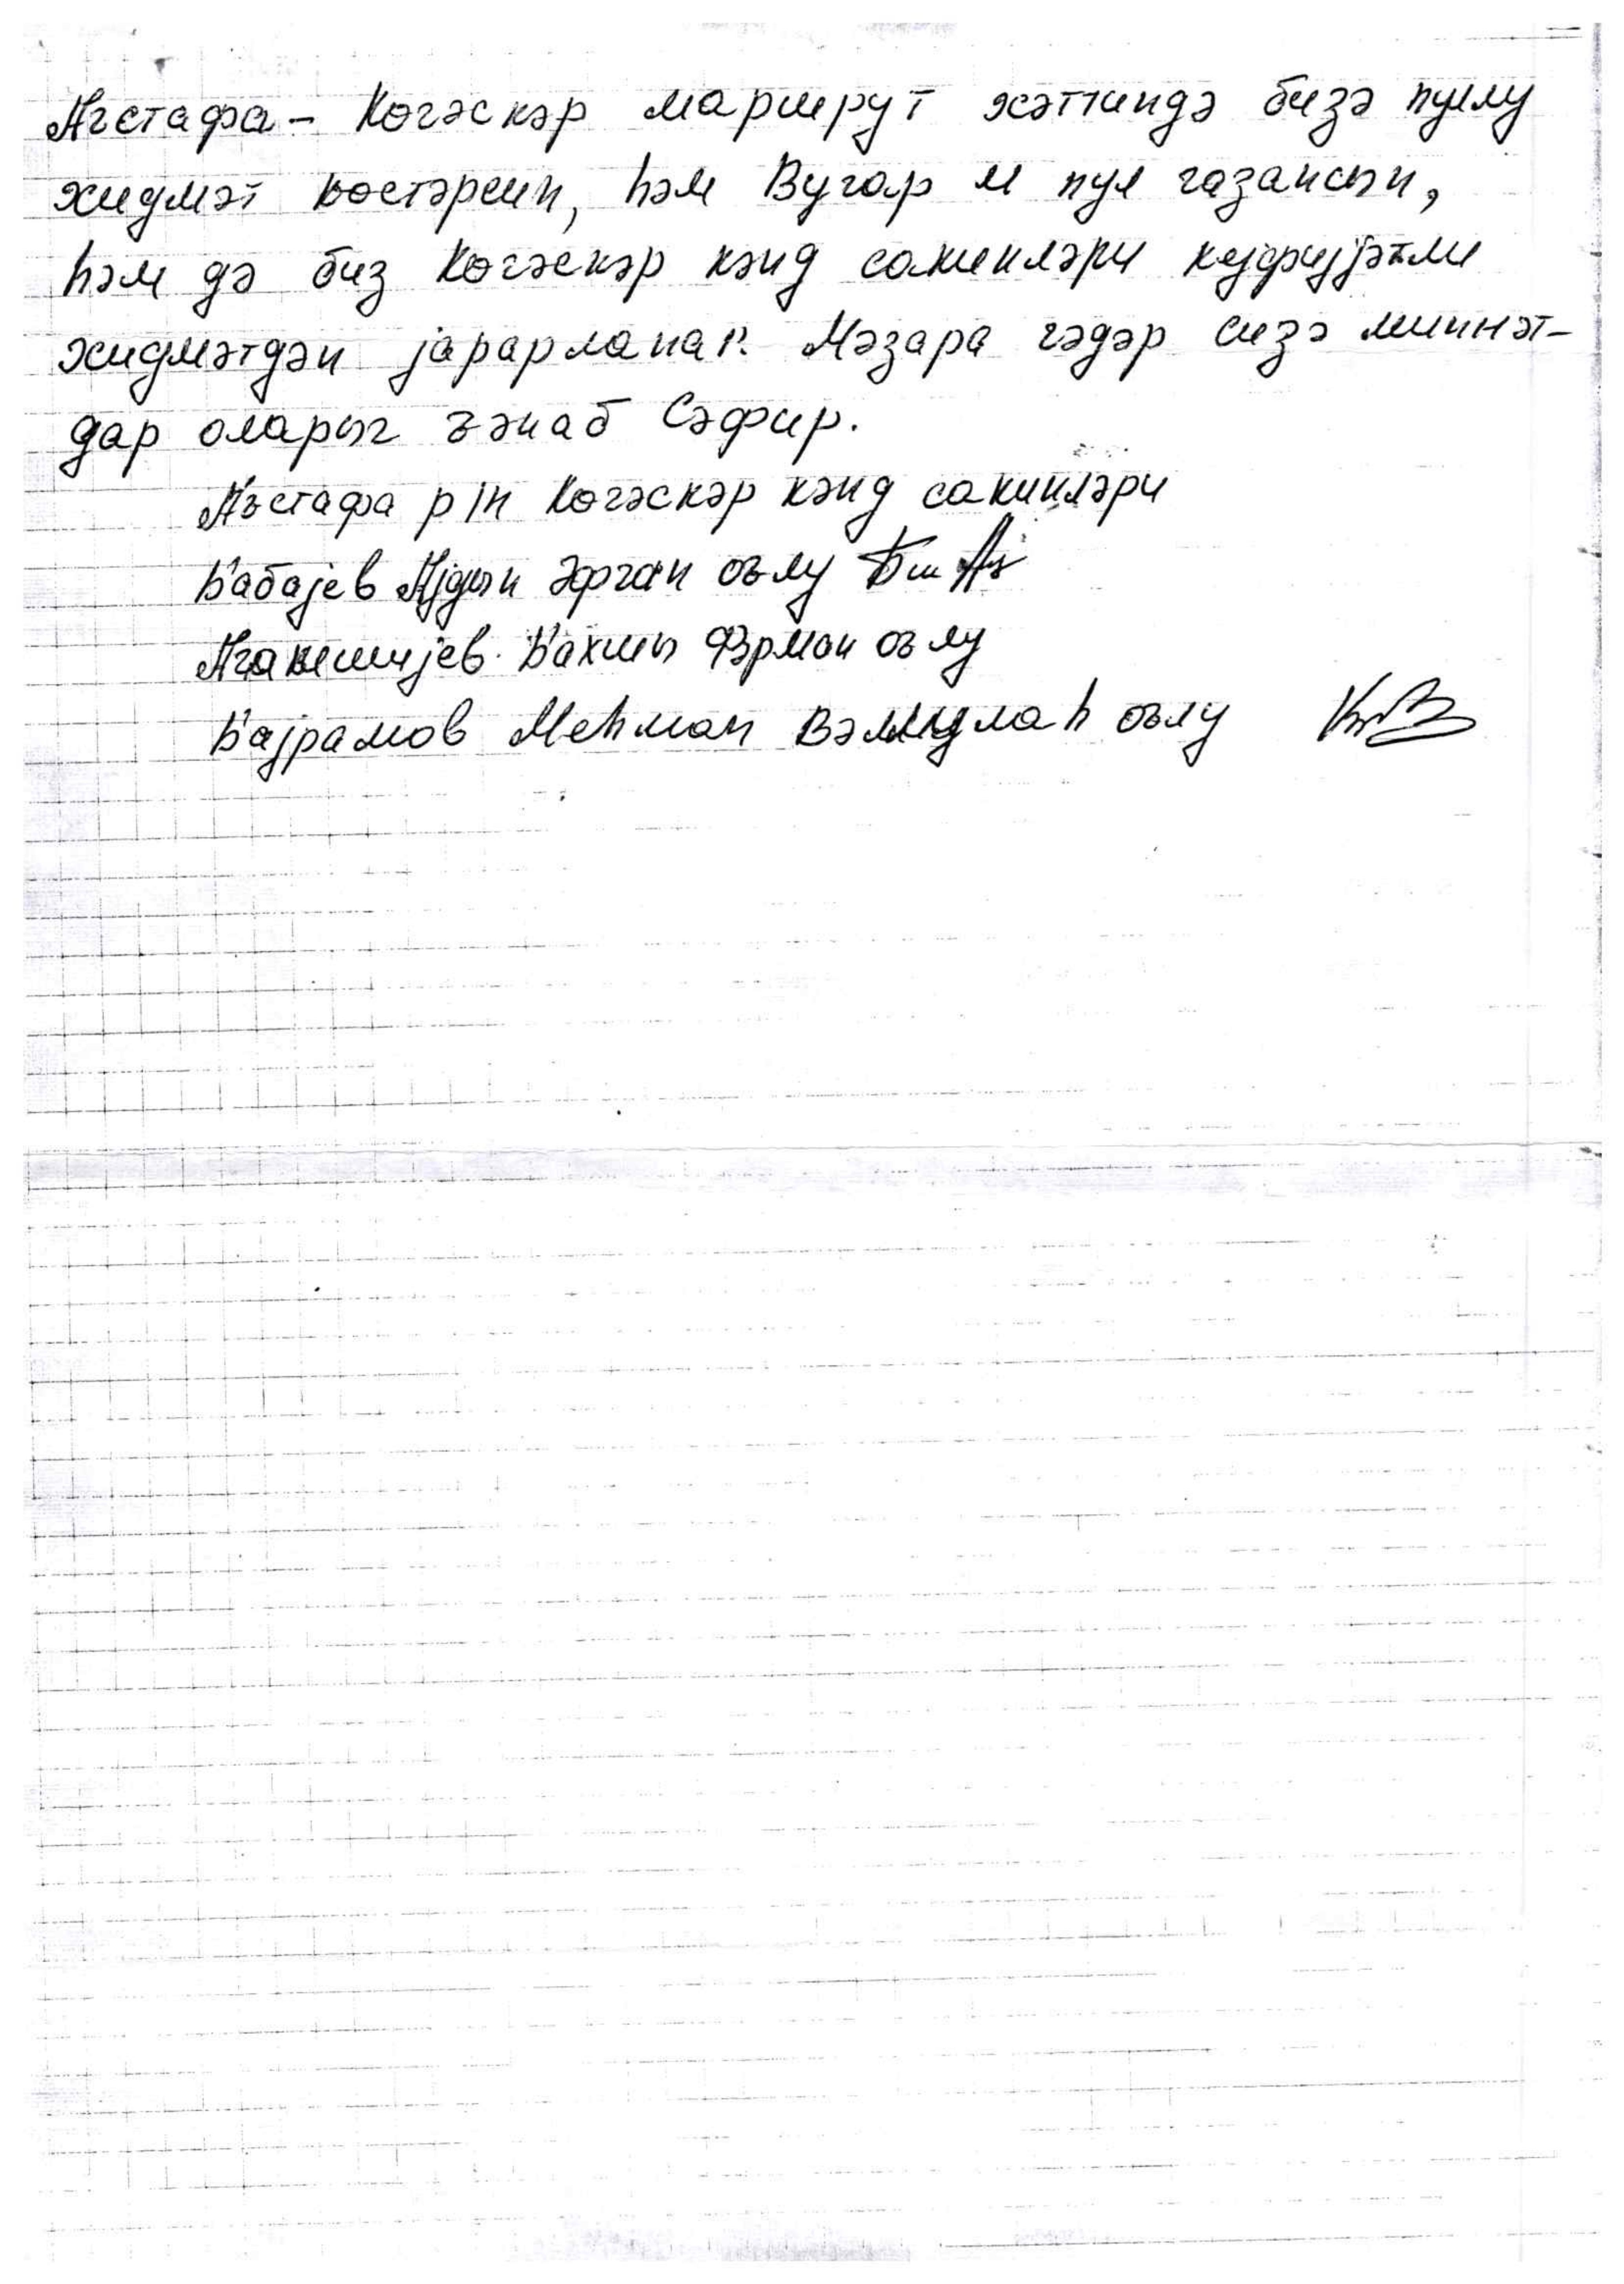 Агстафа – Көгәскәр маршрут хәттиндә бизә пуллу
хидмәт көстәрсин, һәм Вугар м пул газансын,
һәм дә биз Көгәскәр кәнд сакинләри кејфијјәтли
хидмәтдән јарарланаг. Мәзара гәдәр сизә миннәт-
дар оларыг ҹәнаб Сәфир.
Аъстафа р/н Көгәскәр кәнд сакинләри
Бабајев Ајдын оълу
Бахыш Фәрман оълу
Бајрамов Меһман оълу